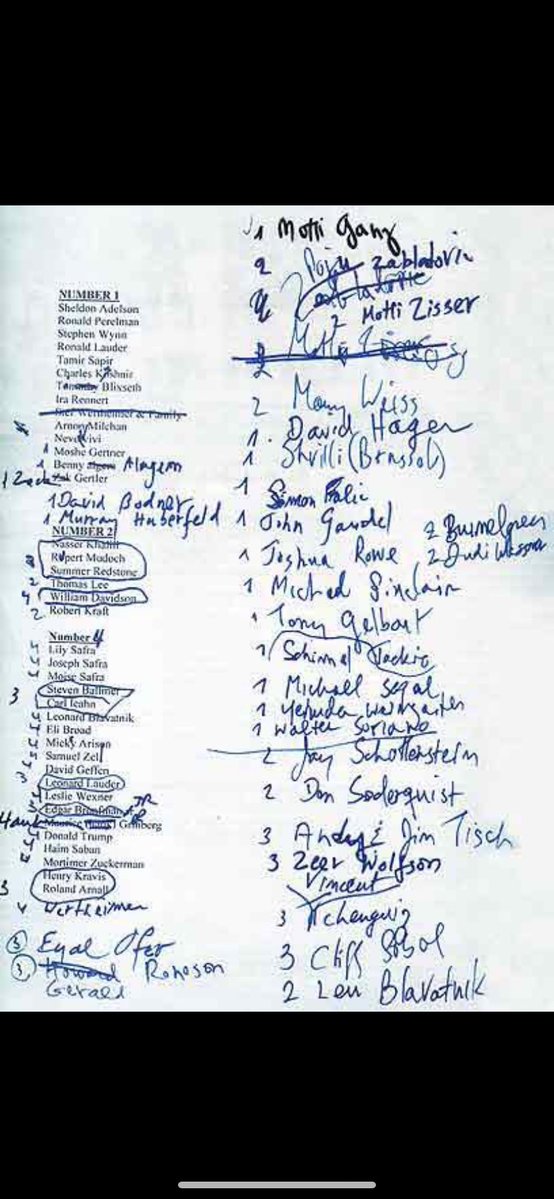 1 Motti Ganz
2 Poju Zabladovic
2 Motti Zisser
2 Mony Weiss
1. David Hager
1 Shvilli (Brussol)
1 Simon Falic
1 John Gandel
2 Dudi
1 Joshua Rowe
1 Michael Sinclair
1 Tony Gelbart
1 Schimmel Jackie
1 Michael Segal
1 Yehuda
1 Walter Soriano
2 Jay Schottenstein
2 Don Soderquist
3 Andy & Jim Tisch
3 Zeev Wolfson
Vincent
3 Tchenguiz
3 Cliff Sobol
2 Len Blavatnik
NUMBER 1
Sheldon Adelson
Ronald Perelman
Stephen Wynn
Ronald Lauder
Tamir Sapir
Charles Kushnir
Blixseth
Ira Rennert
Stef Wertheimer & Family
Arnon Milchan
Kivi
1 Moshe Gertner
1 Benny Alagem
1 Gertler
1 David Bodner
1 Murray Huberfeld
NUMBER 2
Nasser Khalili
Rupert Mudoch
Summer Redstone
2 Thomas Lee
4 William Davidson
2. Robert Kraft
Number 4
4 Lily Safra
4 Joseph Safra
4 Moise Safra
3 Steven Ballmer
Carl Icahn
4 Leonard Blavatnik
4 Eli Broad
4 Micky Arison
Samuel Zell
David Geffen
3 Leonard Lauder
4 Leslie Wexner
3 Edgar Bronfman JR
Hank Maurice Grinberg
4 Donald Trump
4 Haim Saban
Mortimer Zuckerman
Henry Kravis
3 Roland Arnall
4 Wertheimer
3 Eyal Ofer
3 Howard Ronson
Gerald